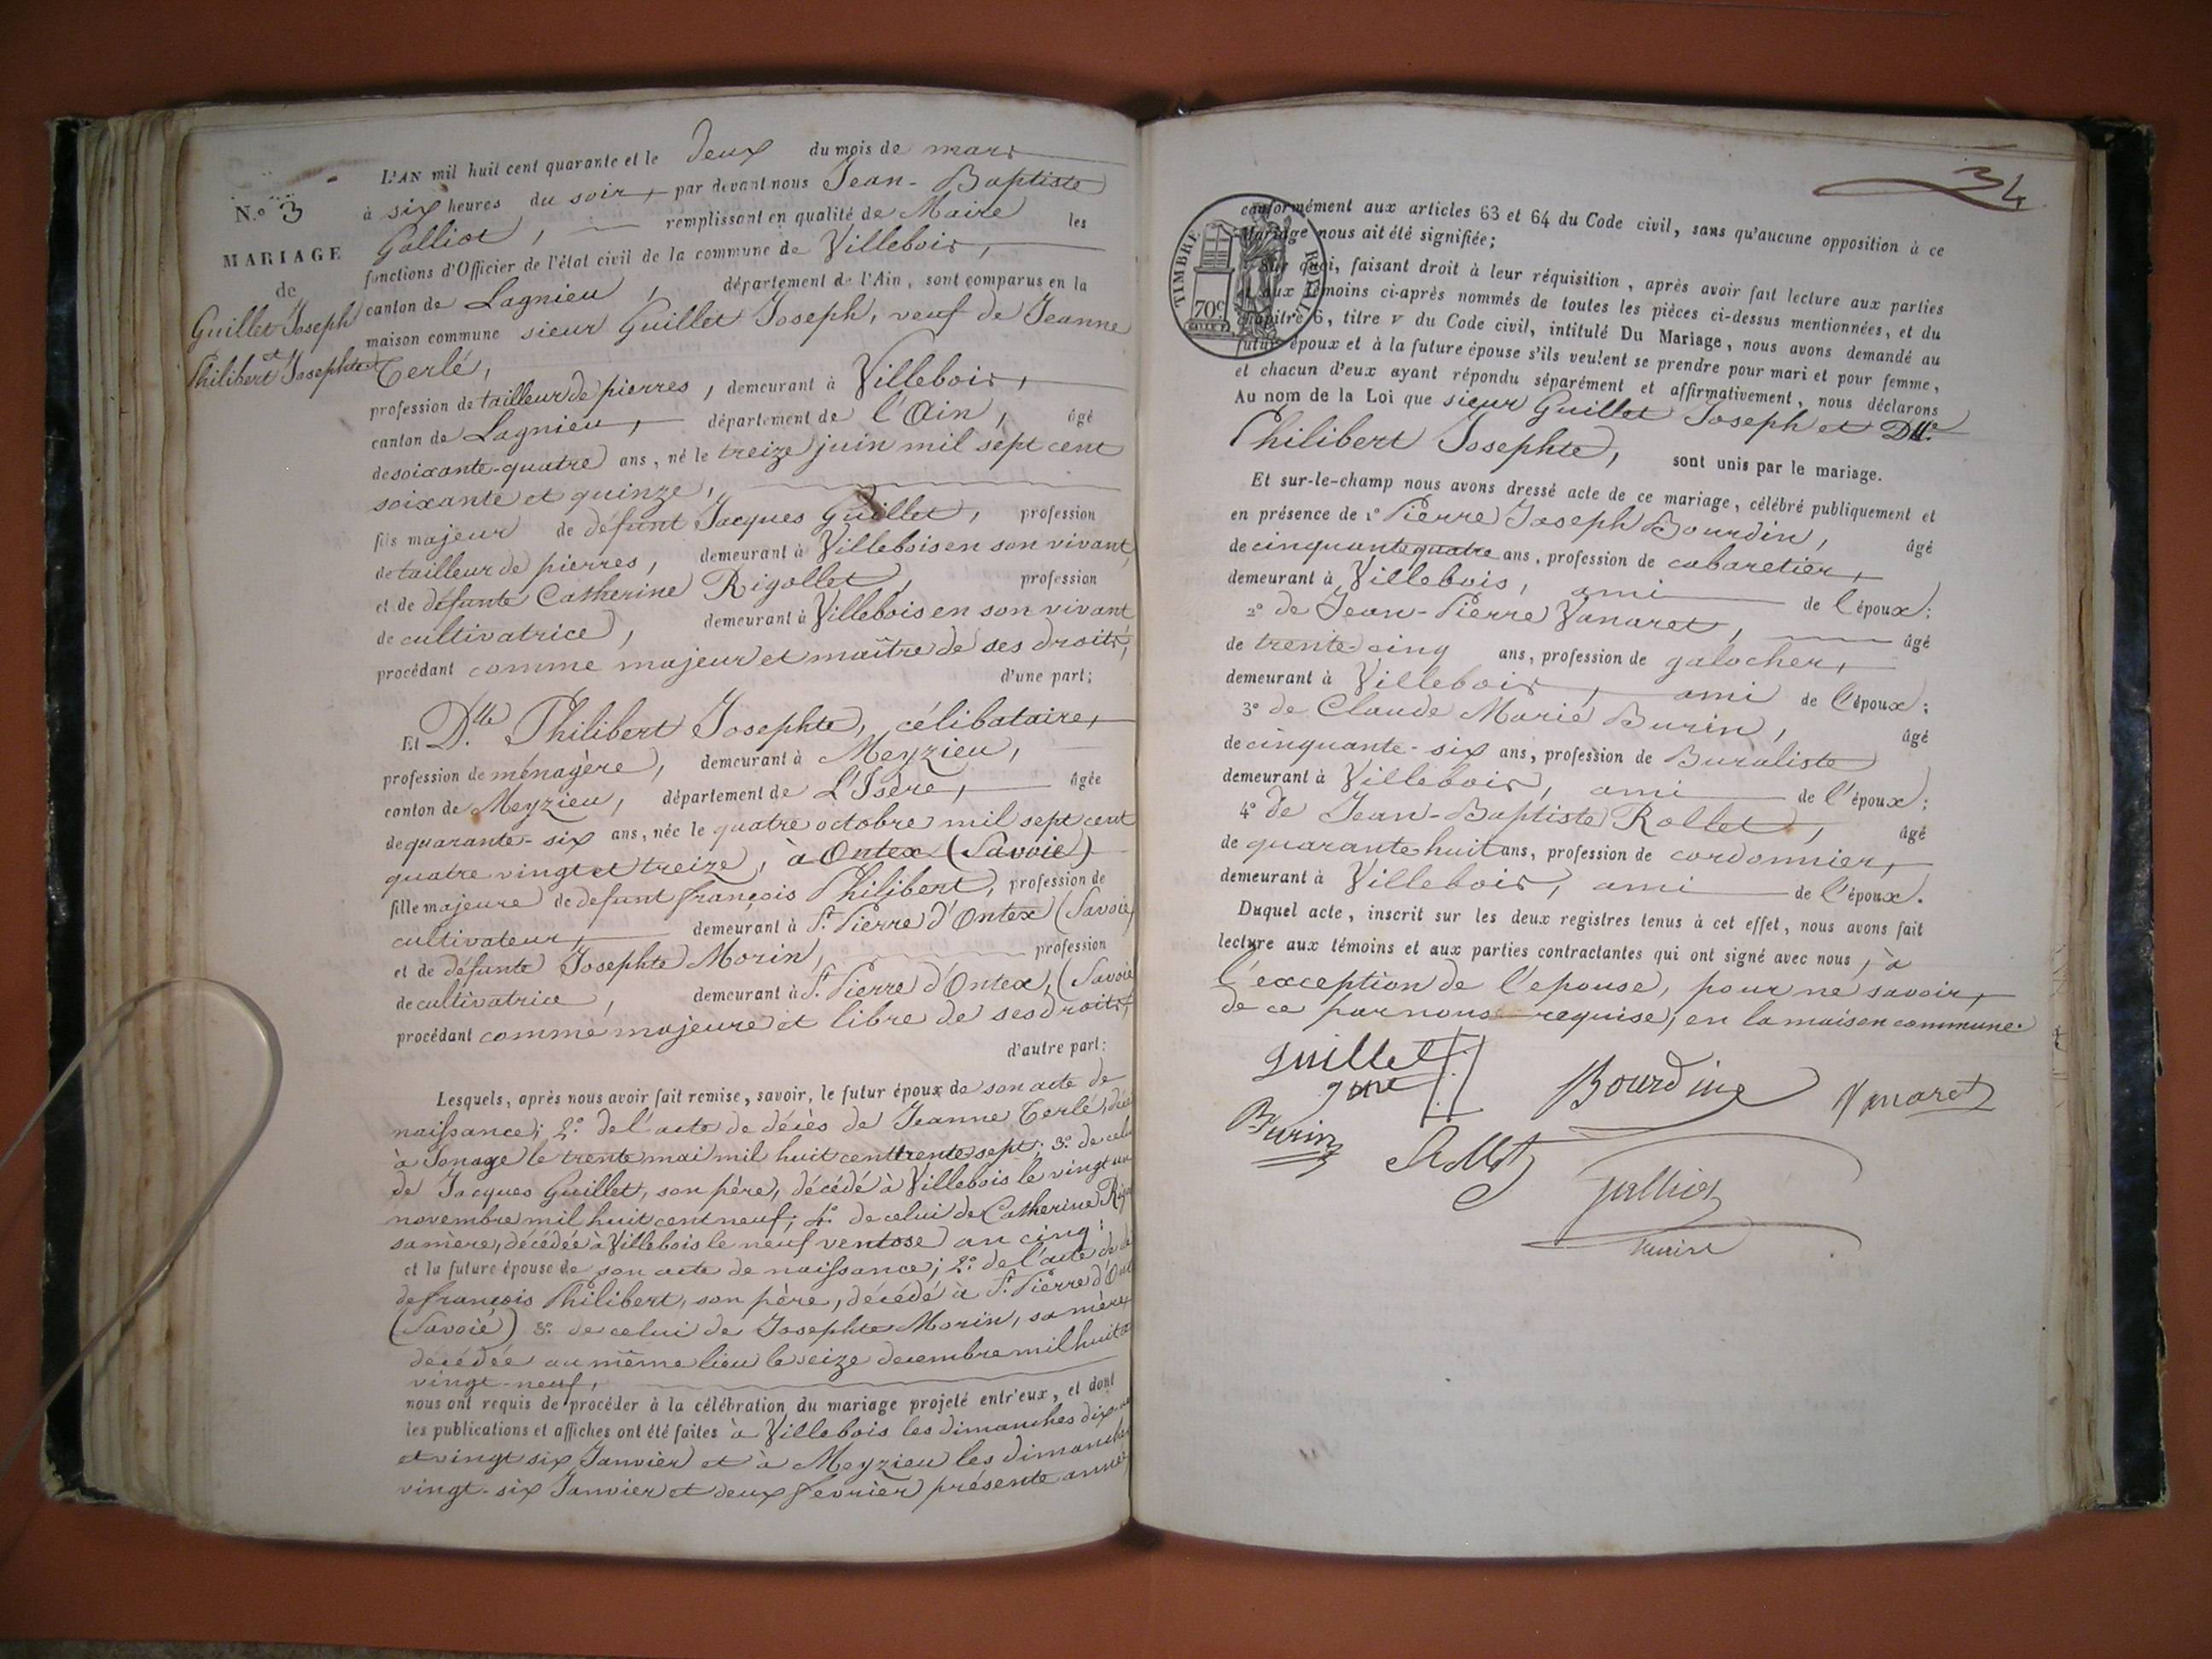 N.º 3
MARIAGE
de
Guillet Joseph
et
Philibert Josephte
L'AN mil huit cent quarante et le deux du mois de mars
à six heures du soir, par devant nous Jean-Baptiste
Galliot, remplissant en qualité de Maire les
fonctions d'Officier de l'état civil de la commune de Villebois,
canton de Lagnieu, département de l'Ain, sont comparus en la
maison commune sieur Guillet Joseph, veuf de Jeanne
Terlé,
profession de tailleur de pierres, demeurant à Villebois,
canton de Lagnieu, département de l'Ain, âgé
de soixante-quatre ans, né le treize juin mil sept cent
soixante et quinze,
fils majeur de défunt Jacques Guillet, profession
de tailleur de pierres, demeurant à Villebois en son vivant,
et de défunte Catherine Rigollet, profession
de cultivatrice, demeurant à Villebois en son vivant
procédant comme majeur et maître de ses droits,
d'une part;
Et D.lle Philibert Josephte, célibataire,
profession de ménagère, demeurant à Meyzieu,
canton de Meyzieu, département de L'Isère, âgée
de quarante-six ans, née le quatre octobre mil sept cent
quatre vingt et treize, à Ontex (Savoie)
fille majeure de defunt françois Philibert, profession de
cultivateur, demeurant à St. Pierre d'Ontex (Savoie)
et de défunte Josephte Morin, profession
de cultivatrice, demeurant à St. Pierre d'Ontex, (Savoie
procédant comme majeure et libre de ses droits,
d'autre part:
Lesquels, après nous avoir fait remise, savoir, le futur époux de son acte de
naissance; 2.º de l'acte de décès de Jeanne Terlé,
à Sonage le trente mai mil huit cent trente sept; 3.º de celui
de Jacques Guillet, son père, décédé à Villebois le vingt un
novembre mil huit cent neuf; 4.º de celui de Catherine
sa mère, décédée à Villebois le neuf ventose an cinq;
et la future épouse de son acte de naissance; 2.º de l'acte de
de françois Philibert, son père, décédé à St. Pierre d'Ont
(Savoie) 3.º de celui de Josephte Morin, sa mère,
décédée au même lieu le seize decembre mil huit
vingt-neuf,
nous ont requis de procéder à la célébration du mariage projeté entr'eux, et dont
les publications et affiches ont été faites à Villebois les dimanches
et vingt six Janvier et à Meyzieu les dimanches
vingt-six Janvier et deux fevrier présente année,
34
TIMBRE ROYAL
70c
conformément aux articles 63 et 64 du Code civil, sans qu'aucune opposition à ce
Mariage nous ait été signifiée;
Sur quoi, faisant droit à leur réquisition, après avoir fait lecture aux parties
et aux témoins ci-après nommés de toutes les pièces ci-dessus mentionnées, et du
chapitre 6, titre V du Code civil, intitulé Du Mariage, nous avons demandé au
futur époux et à la future épouse s'ils veulent se prendre pour mari et pour femme,
et chacun d'eux ayant répondu séparément et affirmativement, nous déclarons
Au nom de la Loi que sieur Guillet Joseph et Dlle
Philibert Josephte, sont unis par le mariage.
Et sur-le-champ nous avons dressé acte de ce mariage, célébré publiquement et
en présence de 1º Pierre Joseph Bourdin, âgé
de cinquante quatre ans, profession de cabaretier,
demeurant à Villebois, ami de l'époux;
2º de Jean-Pierre Vanaret, âgé
de trente-cinq ans, profession de galocher,
demeurant à Villebois, ami de l'époux;
3º de Claude Marie Burin, âgé
de cinquante-six ans, profession de Buraliste
demeurant à Villebois, ami de l'époux;
4º de Jean-Baptiste Rollet, âgé
de quarante huit ans, profession de cordonnier,
demeurant à Villebois, ami de l'époux.
Duquel acte, inscrit sur les deux registres tenus à cet effet, nous avons fait
lecture aux témoins et aux parties contractantes qui ont signé avec nous, à
l'exception de l'epouse, pour ne savoir,
de ce par nous requise, en la maison commune.
Guillet Bourdin Vanaret
Burin Rollet Galliot
maire